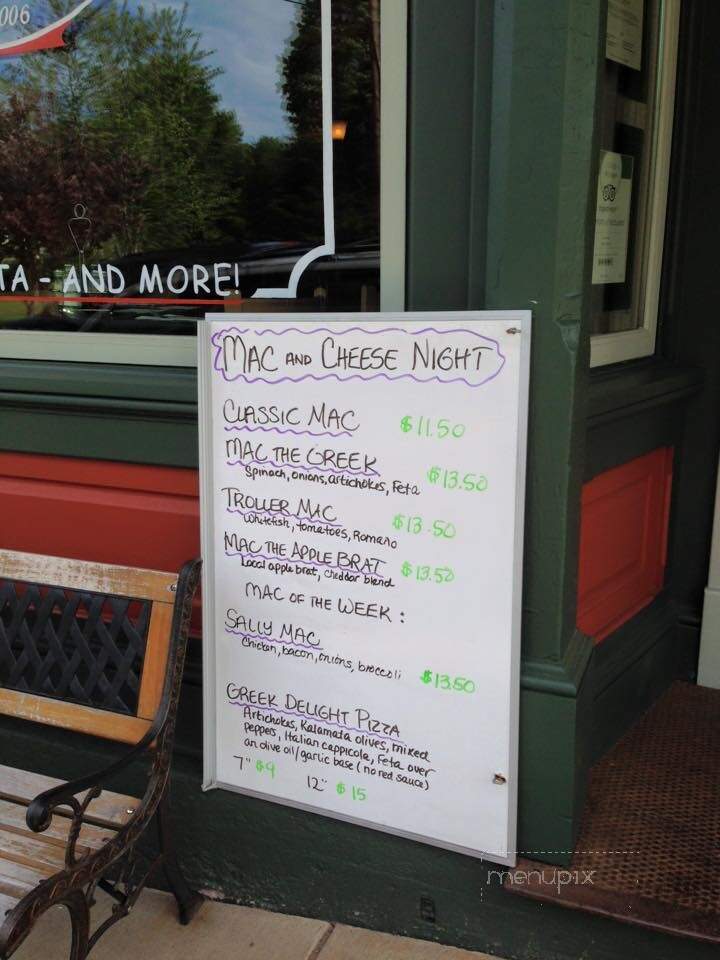 006
TA - AND MORE!
MAC AND CHEESE NIGHT
CLASSIC MAC $11.50
MAC THE GREEK $13.50
Spinach, onions, artichokes, Feta
TROLLER MAC $13.50
Whitefish, tomatoes, Romano
MAC THE APPLE BRAT $13.50
Local apple brat, cheddar blend
MAC OF THE WEEK :
SALLY MAC $13.50
Chicken, bacon, onions, broccoli
GREEK DELIGHT PIZZA
Artichokes, Kalamata olives, mixed
peppers, Italian cappicola, Feta over
an olive oil/garlic base (no red sauce)
7" $9 12" $15
menupix